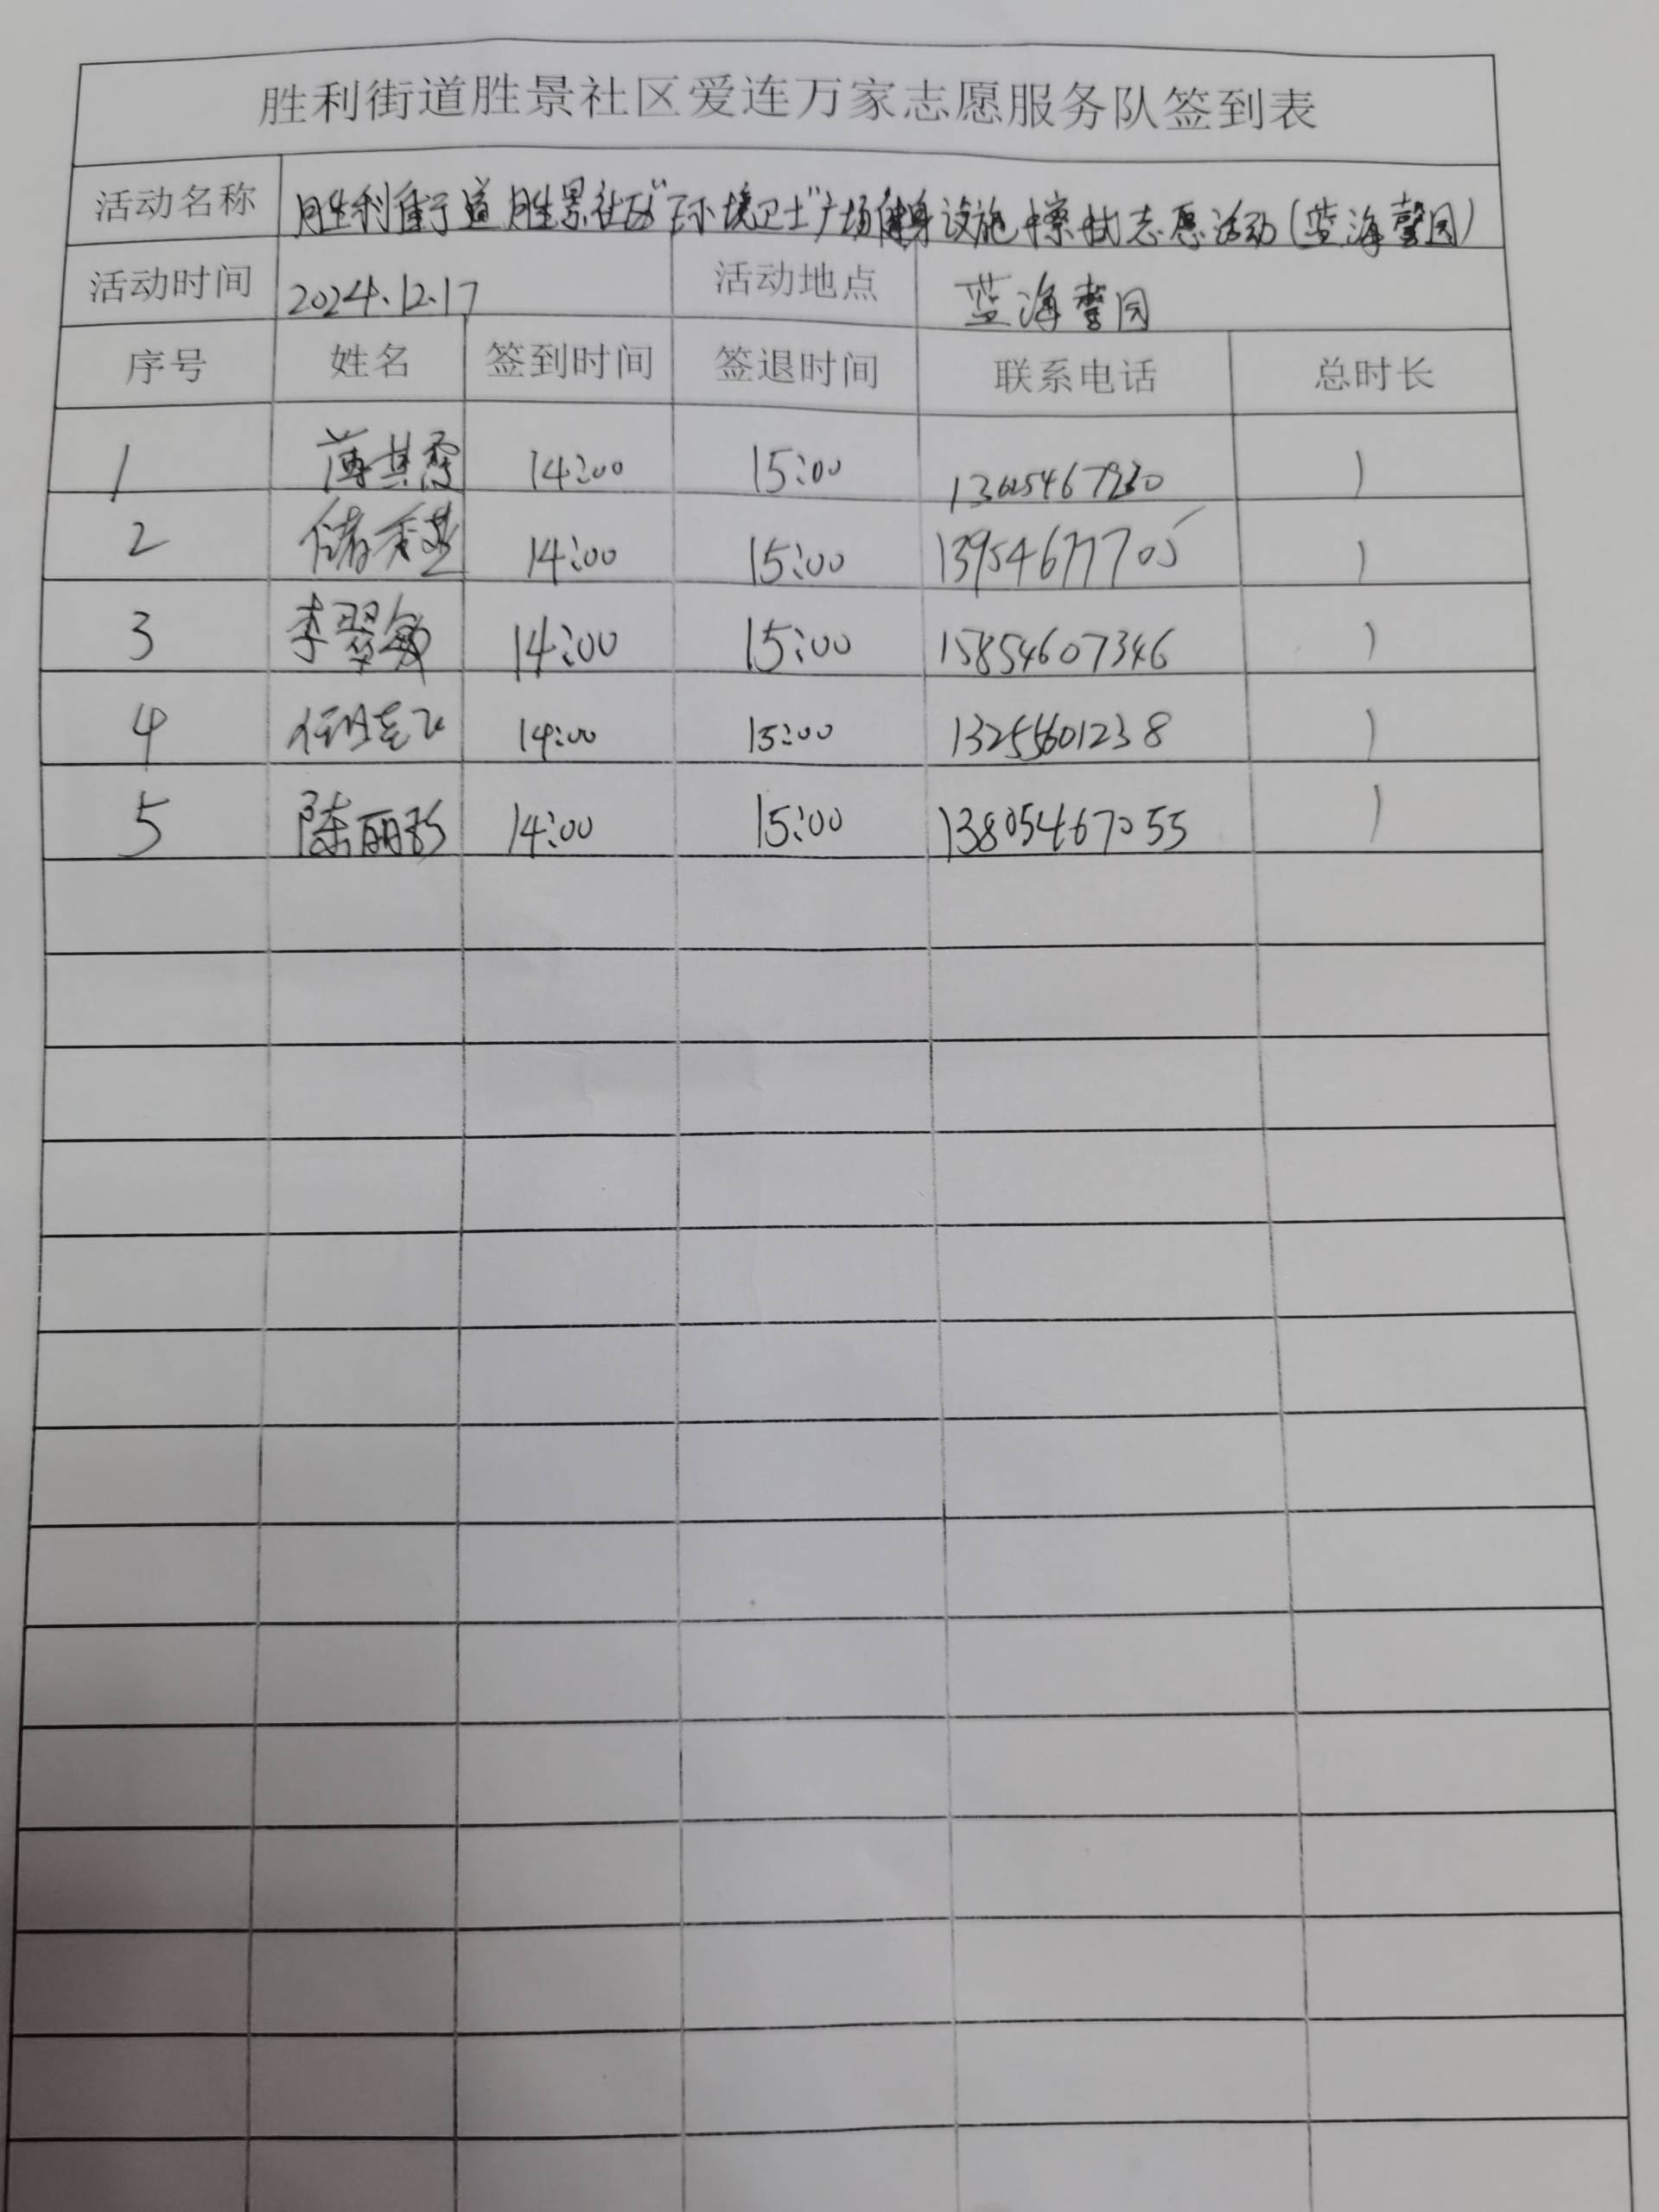 胜利街道胜景社区爱连万家志愿服务队签到表
活动名称 胜利街道胜景社区"环境卫士"广场健身设施擦拭志愿活动(蓝海馨园)
活动时间 2024.12.17 活动地点 蓝海馨园
序号 姓名 签到时间 签退时间 联系电话 总时长
1 薄其 14:00 15:00 1
2 14:00 15:00 13954677705 1
3 李翠敏 14:00 15:00 15854607346 1
4 14:00 15:00 1
5 陈丽珍 14:00 15:00 13805467055 1